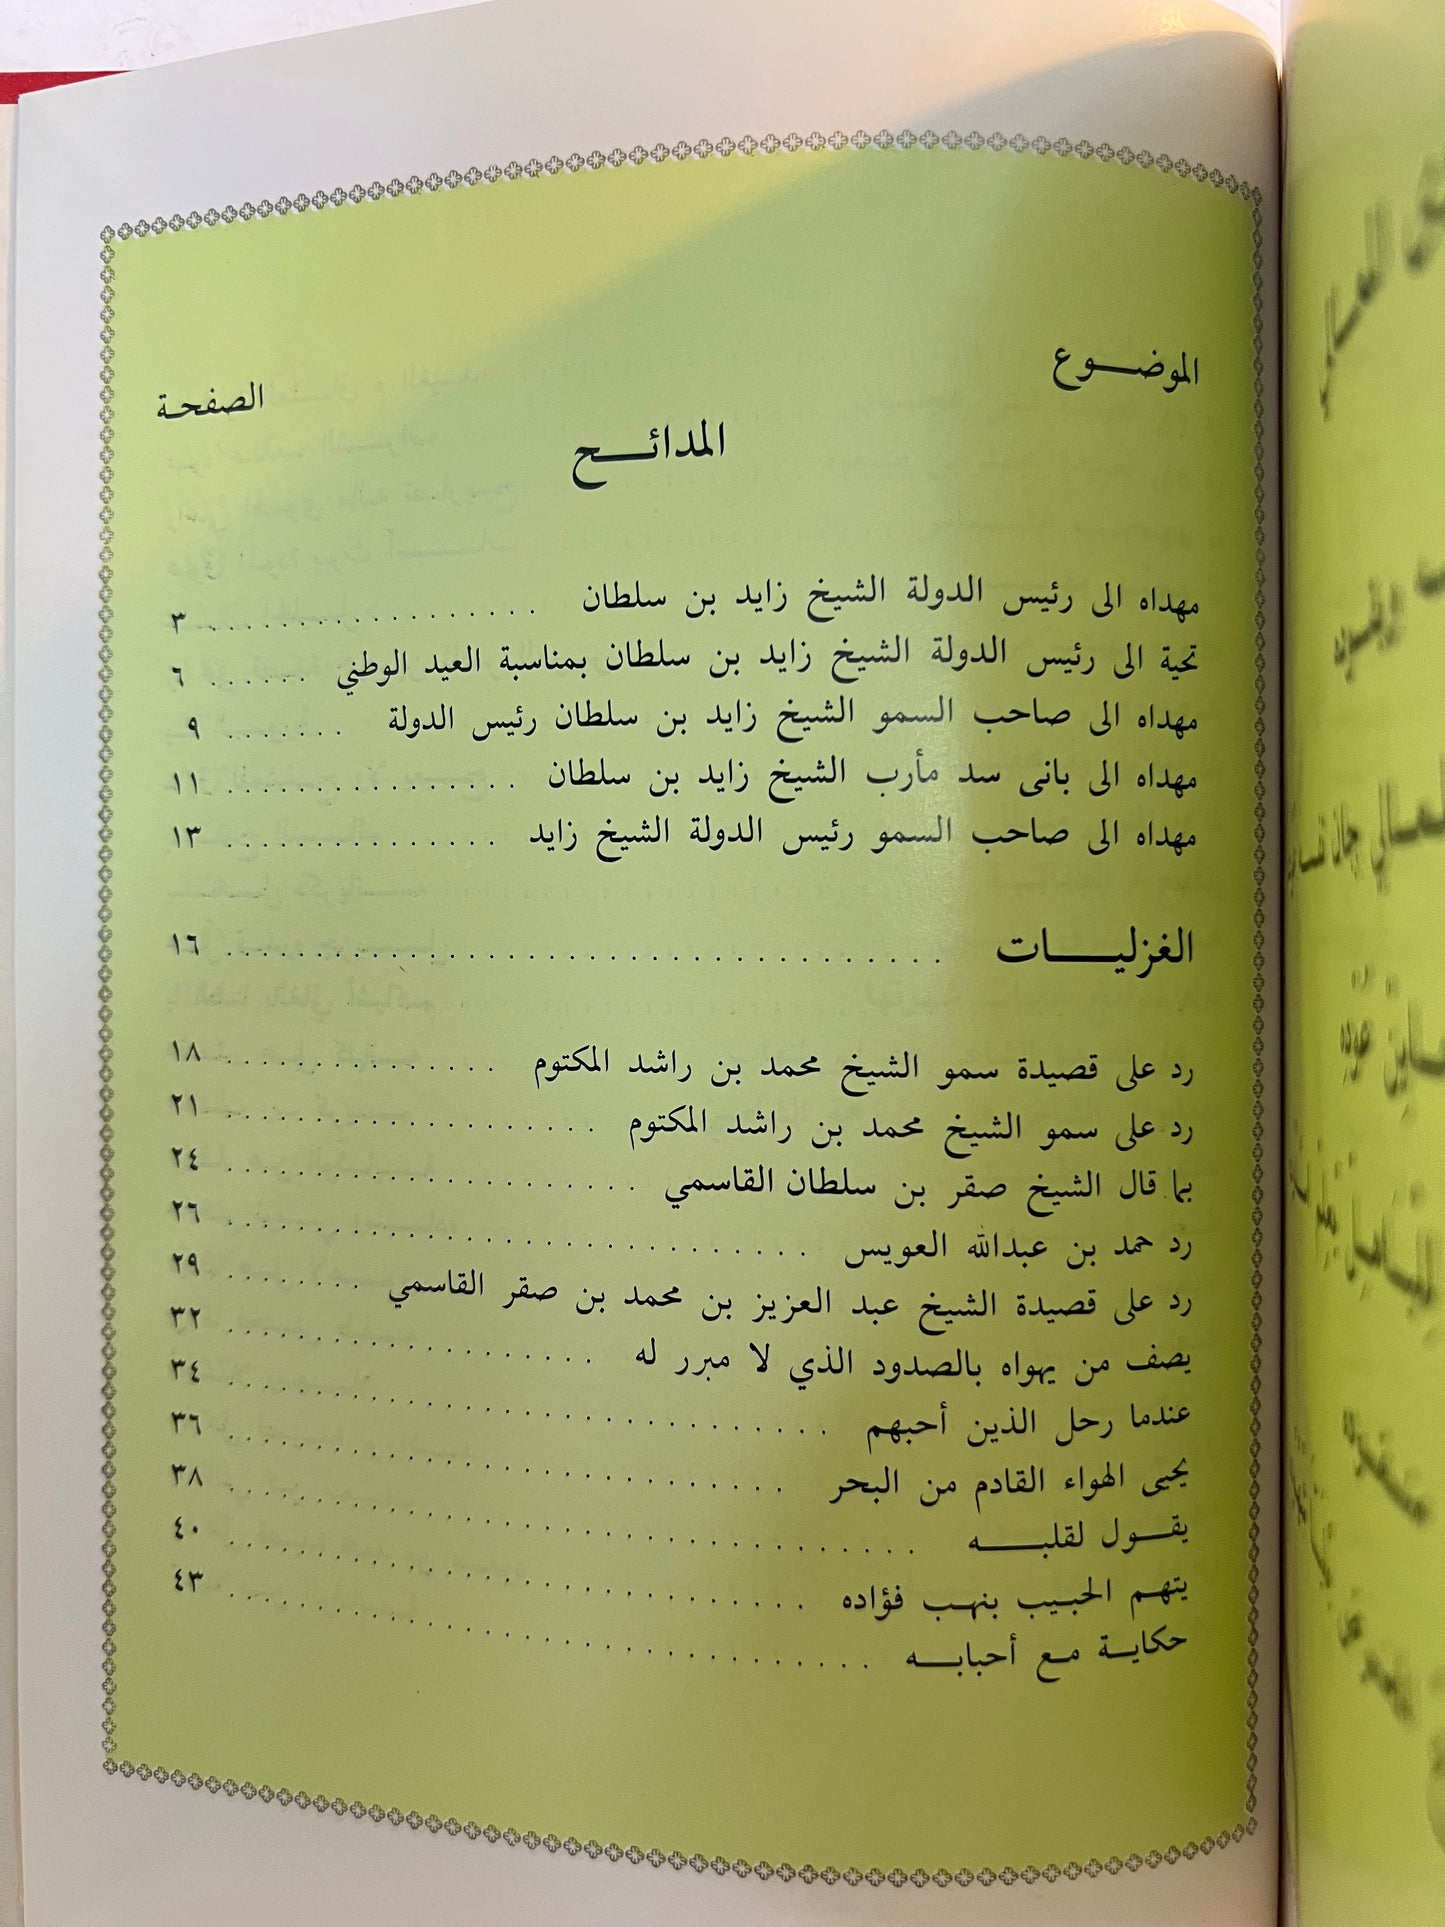 الموضـــوع الصفحة
المدائـــح
مهداه الى رئيس الدولة الشيخ زايد بن سلطان . . . . . . . . . . . . . . . . ٣
تحية الى رئيس الدولة الشيخ زايد بن سلطان بمناسبة العيد الوطني . . . . . . ٦
مهداه الى صاحب السمو الشيخ زايد بن سلطان رئيس الدولة . . . . . . . ٩
مهداه الى بانى سد مأرب الشيخ زايد بن سلطان . . . . . . . . . . . . . . . . ١١
مهداه الى صاحب السمو رئيس الدولة الشيخ زايد . . . . . . . . . . . . . . . ١٣
الغزليـــــات . . . . . . . . . . . . . . . . . . . . . . . . . . . . . . . . . ١٦
رد على قصيدة سمو الشيخ محمد بن راشد المكتوم . . . . . . . . . . . . . . . ١٨
رد على سمو الشيخ محمد بن راشد المكتوم . . . . . . . . . . . . . . . . . . . . ٢١
بما قال الشيخ صقر بن سلطان القاسمي . . . . . . . . . . . . . . . . . . . . . . ٢٤
رد حمد بن عبدالله العويس . . . . . . . . . . . . . . . . . . . . . . . . . . . . ٢٦
رد على قصيدة الشيخ عبد العزيز بن محمد بن صقر القاسمي . . . . . . . . ٢٩
يصف من يهواه بالصدود الذي لا مبرر له . . . . . . . . . . . . . . . . . . . . ٣٢
عندما رحل الذين أحبهم . . . . . . . . . . . . . . . . . . . . . . . . . . . . . ٣٤
يحيى الهواء القادم من البحر . . . . . . . . . . . . . . . . . . . . . . . . . . . ٣٦
يقــول لقلبـــــه . . . . . . . . . . . . . . . . . . . . . . . . . . . . . . . . ٣٨
يتهم الحبيب بنهب فؤاده . . . . . . . . . . . . . . . . . . . . . . . . . . . . ٤٠
حكايـة مـع أحبابـــه . . . . . . . . . . . . . . . . . . . . . . . . . . . . . . ٤٣